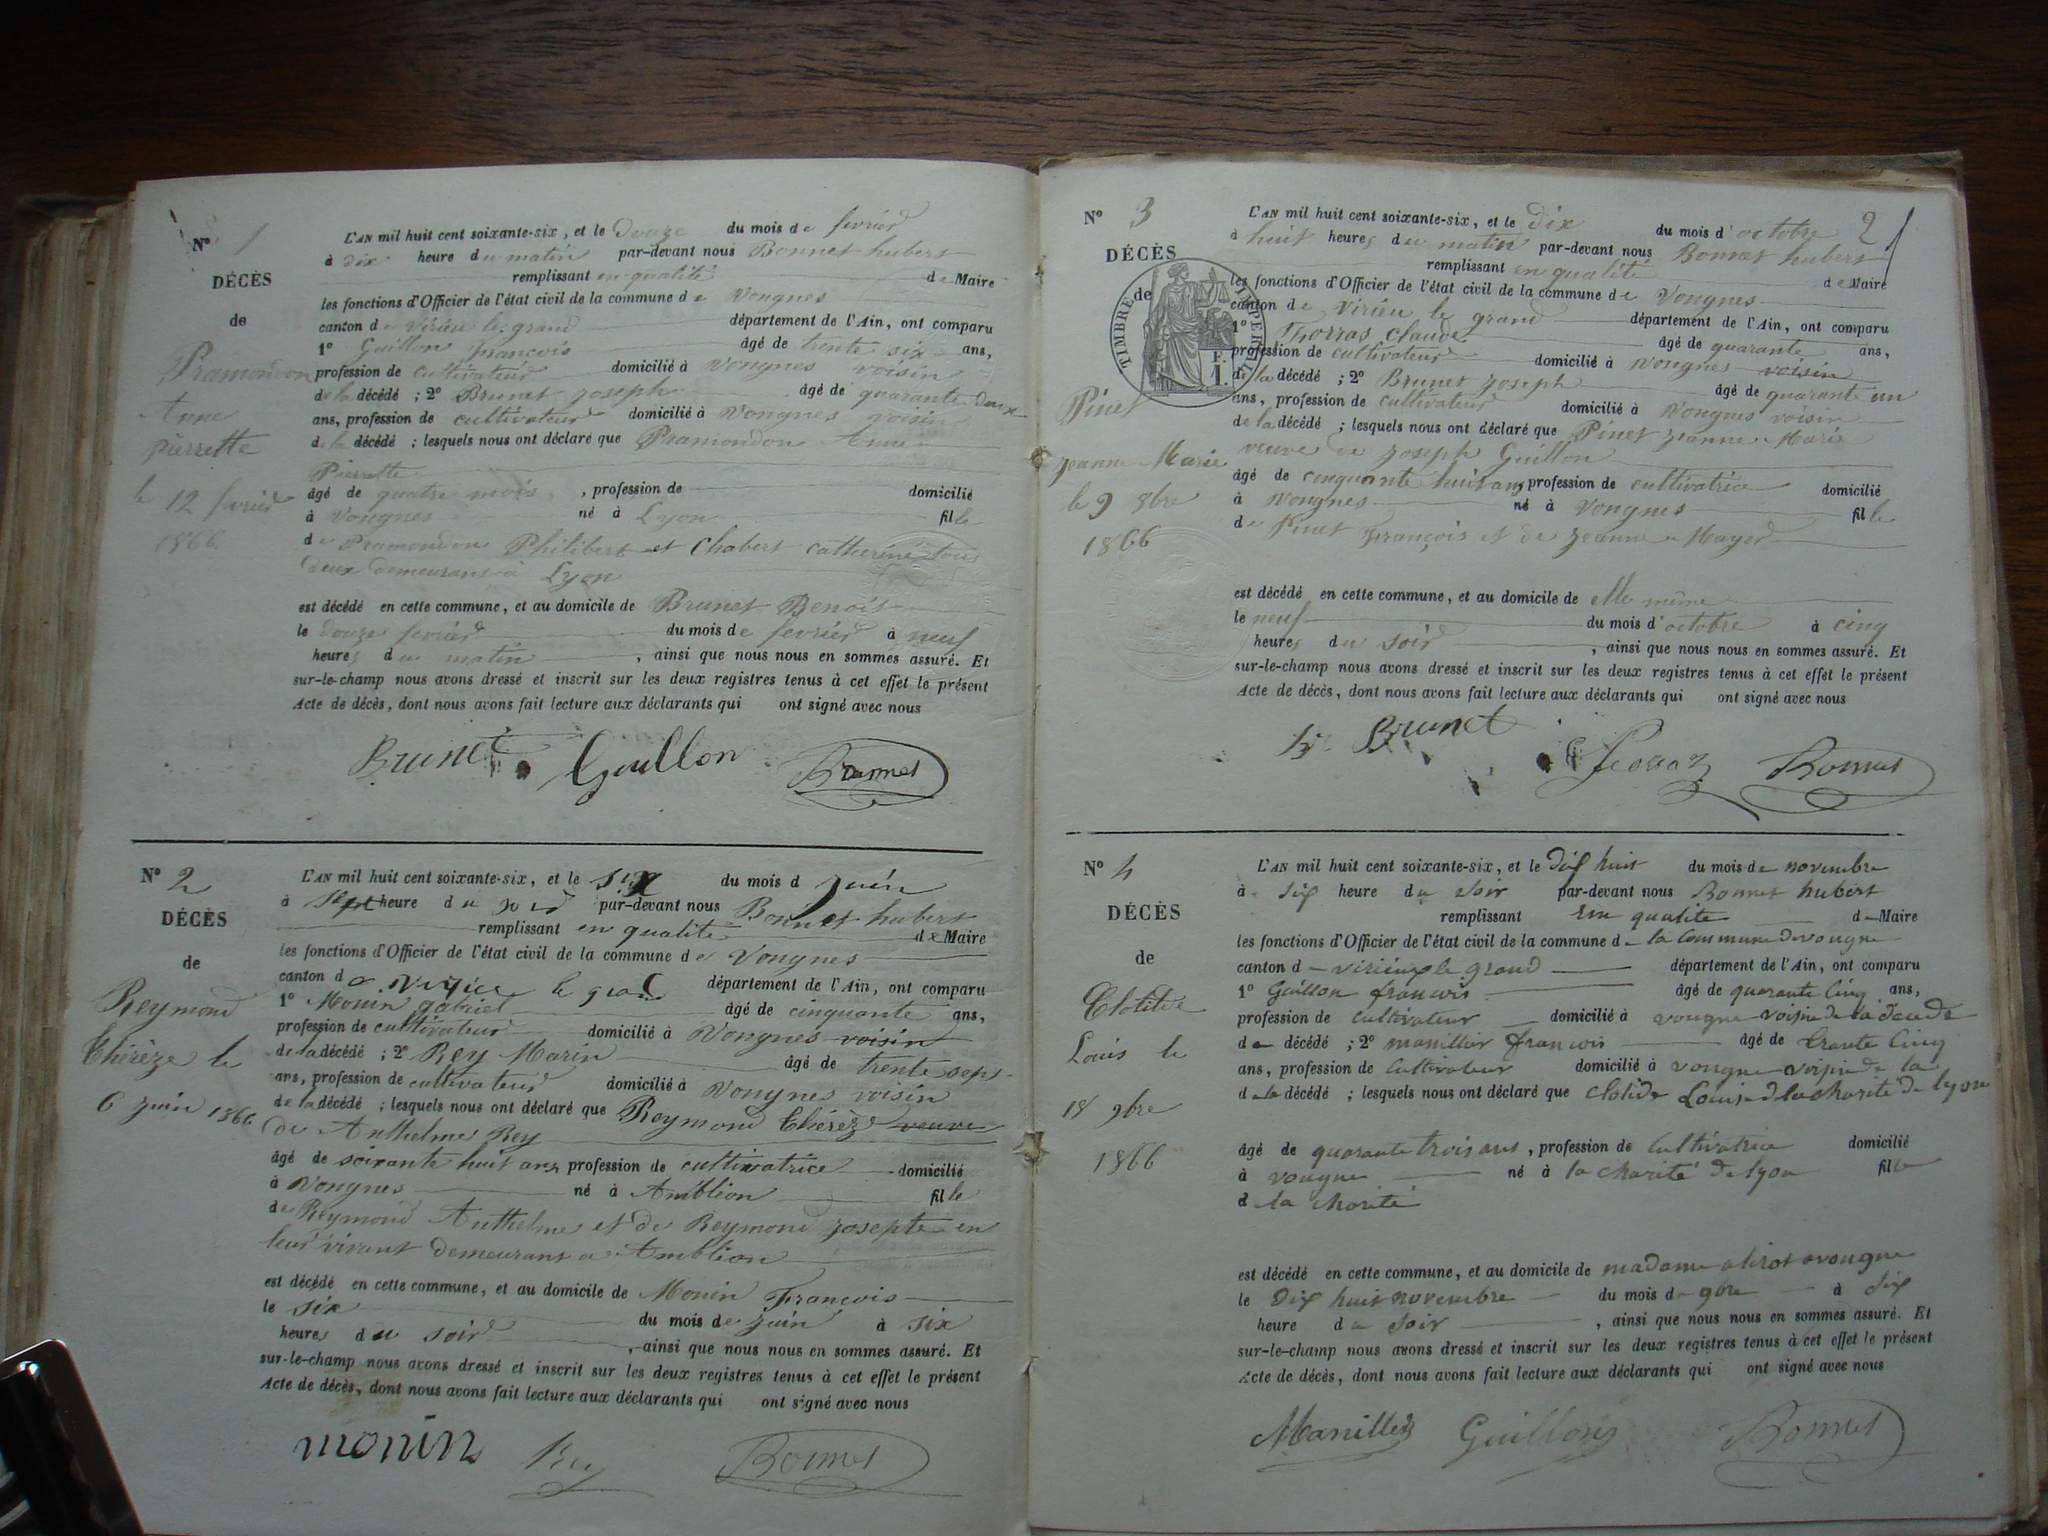 N° 1
DÉCÈS
de
Pramondon
Anne
pierrette
le 12 février
1866
L'AN mil huit cent soixante-six, et le douze du mois de février
à dix heure du matin par-devant nous Bonnet hubert
remplissant en qualité de Maire
les fonctions d'Officier de l'état civil de la commune de Vongnes
canton de Virieu le grand département de l'Ain, ont comparu
1° Guillon François âgé de trente six ans,
profession de cultivateur domicilié à Vongnes voisin
de la décédé ; 2° Brunet Joseph âgé de quarante deux
ans, profession de cultivateur domicilié à Vongnes voisin
de la décédé ; lesquels nous ont déclaré que Pramondon Anne
Pierrette
âgé de quatre mois, profession de domicilié
à Vongnes né à Lyon fille
de Pramondon Philibert et Chabert catherine tous
deux demeurant à Lyon
est décédé en cette commune, et au domicile de Brunet Benoit
le douze février du mois de février à neuf
heures du matin, ainsi que nous nous en sommes assuré. Et
sur-le-champ nous avons dressé et inscrit sur les deux registres tenus à cet effet le présent
Acte de décès, dont nous avons fait lecture aux déclarants qui ont signé avec nous
Brunet Guillon Bonnet
N° 2
DÉCÈS
de
Reymond
Thérèze le
6 juin 1866
L'AN mil huit cent soixante-six, et le six du mois d juin
à sept heure du soir par-devant nous Bonnet hubert
remplissant en qualité de Maire
les fonctions d'Officier de l'état civil de la commune de Vongnes
canton de le grand département de l'Ain, ont comparu
1° Monin gabriel âgé de cinquante ans,
profession de cultivateur domicilié à Vongnes voisin
de la décédé ; 2° Rey Marin âgé de trente sept
ans, profession de cultivateur domicilié à Vongnes voisin
de la décédé ; lesquels nous ont déclaré que Reymond Thérèze veuve
de Anthelme Rey
âgé de soixante huit ans profession de cultivatrice domicilié
à Vongnes né à Amblion fille
de Reymond Anthelme et de Reymond Josepte en
leur vivant demeurant a Amblion
est décédé en cette commune, et au domicile de Monin François
le six du mois de juin à six
heures du soir, ainsi que nous nous en sommes assuré. Et
sur-le-champ nous avons dressé et inscrit sur les deux registres tenus à cet effet le présent
Acte de décès, dont nous avons fait lecture aux déclarants qui ont signé avec nous
monin Rey Bonnet
2
N° 3
DÉCÈS
de
TIMBRE IMPERIAL
F.
1.
Pinet
Jeanne Marie
le 9 8bre
1866
L'AN mil huit cent soixante-six, et le dix du mois d'octobre
à huit heures du matin par-devant nous Bonnet hubert
remplissant en qualité de Maire
les fonctions d'Officier de l'état civil de la commune de Vongnes
canton de Virieu le grand département de l'Ain, ont comparu
1° claude âgé de quarante ans,
profession de cultivateur domicilié à Vongnes voisin
de la décédé ; 2° Brunet Joseph âgé de quarante un
ans, profession de cultivateur domicilié à Vongnes voisin
de la décédé ; lesquels nous ont déclaré que Pinet Jeanne Marie
veuve de Joseph Guillon
âgé de cinquante huit ans profession de cultivatrice domicilié
à Vongnes né à Vongnes fille
de Pinet François et de Jeanne Mayer
est décédé en cette commune, et au domicile de elle même
le neuf du mois d'octobre à cinq
heures du soir, ainsi que nous nous en sommes assuré. Et
sur-le-champ nous avons dressé et inscrit sur les deux registres tenus à cet effet le présent
Acte de décès, dont nous avons fait lecture aux déclarants qui ont signé avec nous
Brunet Bonnet
N° 4
DÉCÈS
de
Clotilde
Louis le
18 9bre
1866
L'AN mil huit cent soixante-six, et le dix huit du mois de novembre
à six heure du soir par-devant nous Bonnet hubert
remplissant Em qualite de Maire
les fonctions d'Officier de l'état civil de la commune de la commune de vougne
canton de virieux le grand département de l'Ain, ont comparu
1° Guillon francois âgé de quarante cinq ans,
profession de cultivateur domicilié à vougne voisin de la
de décédé ; 2° francois âgé de trante cinq
ans, profession de cultivateur domicilié à vougne de la
de la décédé ; lesquels nous ont déclaré que clotide Louise de la charite de lyon
âgé de quarante trois ans, profession de cultivatrice domicilié
à vougne né à la charité de lyon fille
d la charité
est décédé en cette commune, et au domicile de madame a vougne
le dix huit novembre du mois de 9bre à six
heure du soir, ainsi que nous nous en sommes assuré. Et
sur-le-champ nous avons dressé et inscrit sur les deux registres tenus à cet effet le présent
Acte de décès, dont nous avons fait lecture aux déclarants qui ont signé avec nous
Guillon Bonnet